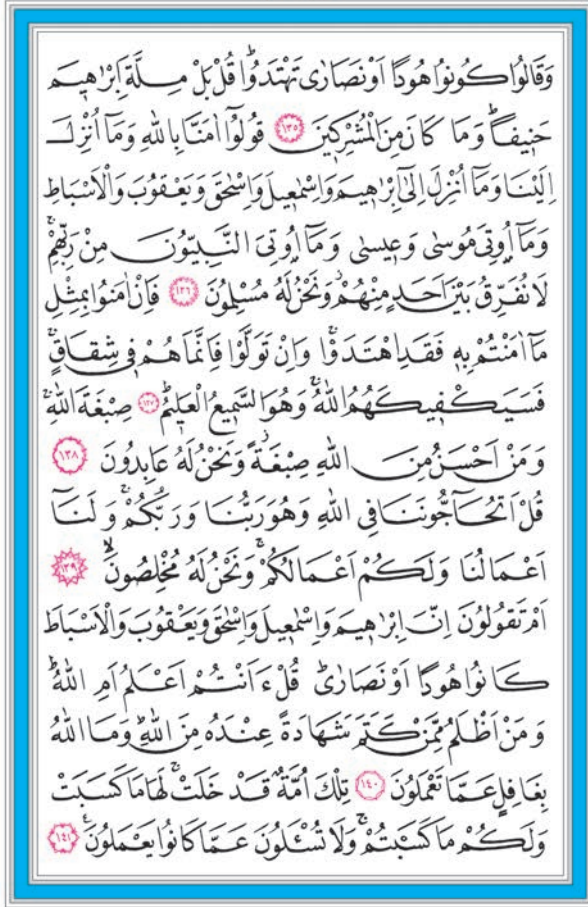 وَقَالُوا كُونُوا هُودًا اَوْ نَصَارٰى تَهْتَدُوۜا قُلْ بَلْ مِلَّةَ اِبْرٰهٖيمَ
حَنٖيفًاۜ وَمَا كَانَ مِنَ الْمُشْرِكٖينَ ﴿١٣٥﴾ قُولُٓوا اٰمَنَّا بِاللّٰهِ وَمَٓا اُنْزِلَ
اِلَيْنَا وَمَٓا اُنْزِلَ اِلٰٓى اِبْرٰهٖيمَ وَاِسْمٰعٖيلَ وَاِسْحٰقَ وَيَعْقُوبَ وَالْاَسْبَاطِ
وَمَٓا اُو۫تِيَ مُوسٰى وَعٖيسٰى وَمَٓا اُو۫تِيَ النَّبِيُّونَ مِنْ رَبِّهِمْۚ
لَا نُفَرِّقُ بَيْنَ اَحَدٍ مِنْهُمْۘ وَنَحْنُ لَهُ مُسْلِمُونَ ﴿١٣٦﴾ فَاِنْ اٰمَنُوا بِمِثْلِ
مَٓا اٰمَنْتُمْ بِهٖ فَقَدِ اهْتَدَوْاۚ وَاِنْ تَوَلَّوْا فَاِنَّمَا هُمْ فٖي شِقَاقٍۚ
فَسَيَكْفٖيكَهُمُ اللّٰهُۚ وَهُوَ السَّمٖيعُ الْعَلٖيمُۜ ﴿١٣٧﴾ صِبْغَةَ اللّٰهِۚ
وَمَنْ اَحْسَنُ مِنَ اللّٰهِ صِبْغَةًۘ وَنَحْنُ لَهُ عَابِدُونَ ﴿١٣٨﴾
قُلْ اَتُحَٓاجُّونَنَا فِي اللّٰهِ وَهُوَ رَبُّنَا وَرَبُّكُمْۚ وَلَنَٓا
اَعْمَالُنَا وَلَكُمْ اَعْمَالُكُمْۚ وَنَحْنُ لَهُ مُخْلِصُونَۙ ﴿١٣٩﴾
اَمْ تَقُولُونَ اِنَّ اِبْرٰهٖيمَ وَاِسْمٰعٖيلَ وَاِسْحٰقَ وَيَعْقُوبَ وَالْاَسْبَاطَ
كَانُوا هُودًا اَوْ نَصَارٰىۜ قُلْ ءَاَنْتُمْ اَعْلَمُ اَمِ اللّٰهُۜ
وَمَنْ اَظْلَمُ مِمَّنْ كَتَمَ شَهَادَةً عِنْدَهُ مِنَ اللّٰهِۜ وَمَا اللّٰهُ
بِغَافِلٍ عَمَّا تَعْمَلُونَ ﴿١٤٠﴾ تِلْكَ اُمَّةٌ قَدْ خَلَتْۚ لَهَا مَا كَسَبَتْ
وَلَكُمْ مَا كَسَبْتُمْۚ وَلَا تُسْـَٔلُونَ عَمَّا كَانُوا يَعْمَلُونَ۟ ﴿١٤١﴾